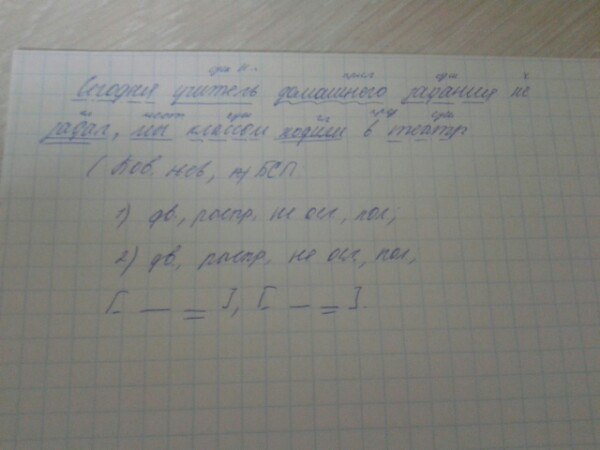 сущ. прил. сущ. ч.
Сегодня учитель домашнего задания не
гл. мест. сущ. гл. пред. сущ.
задал, мы классом ходили в театр
(Пов. нев, БСП
1) дв, распр, не осл, пол;
2) дв, распр, не осл, пол;
[- — =], [ - — =].